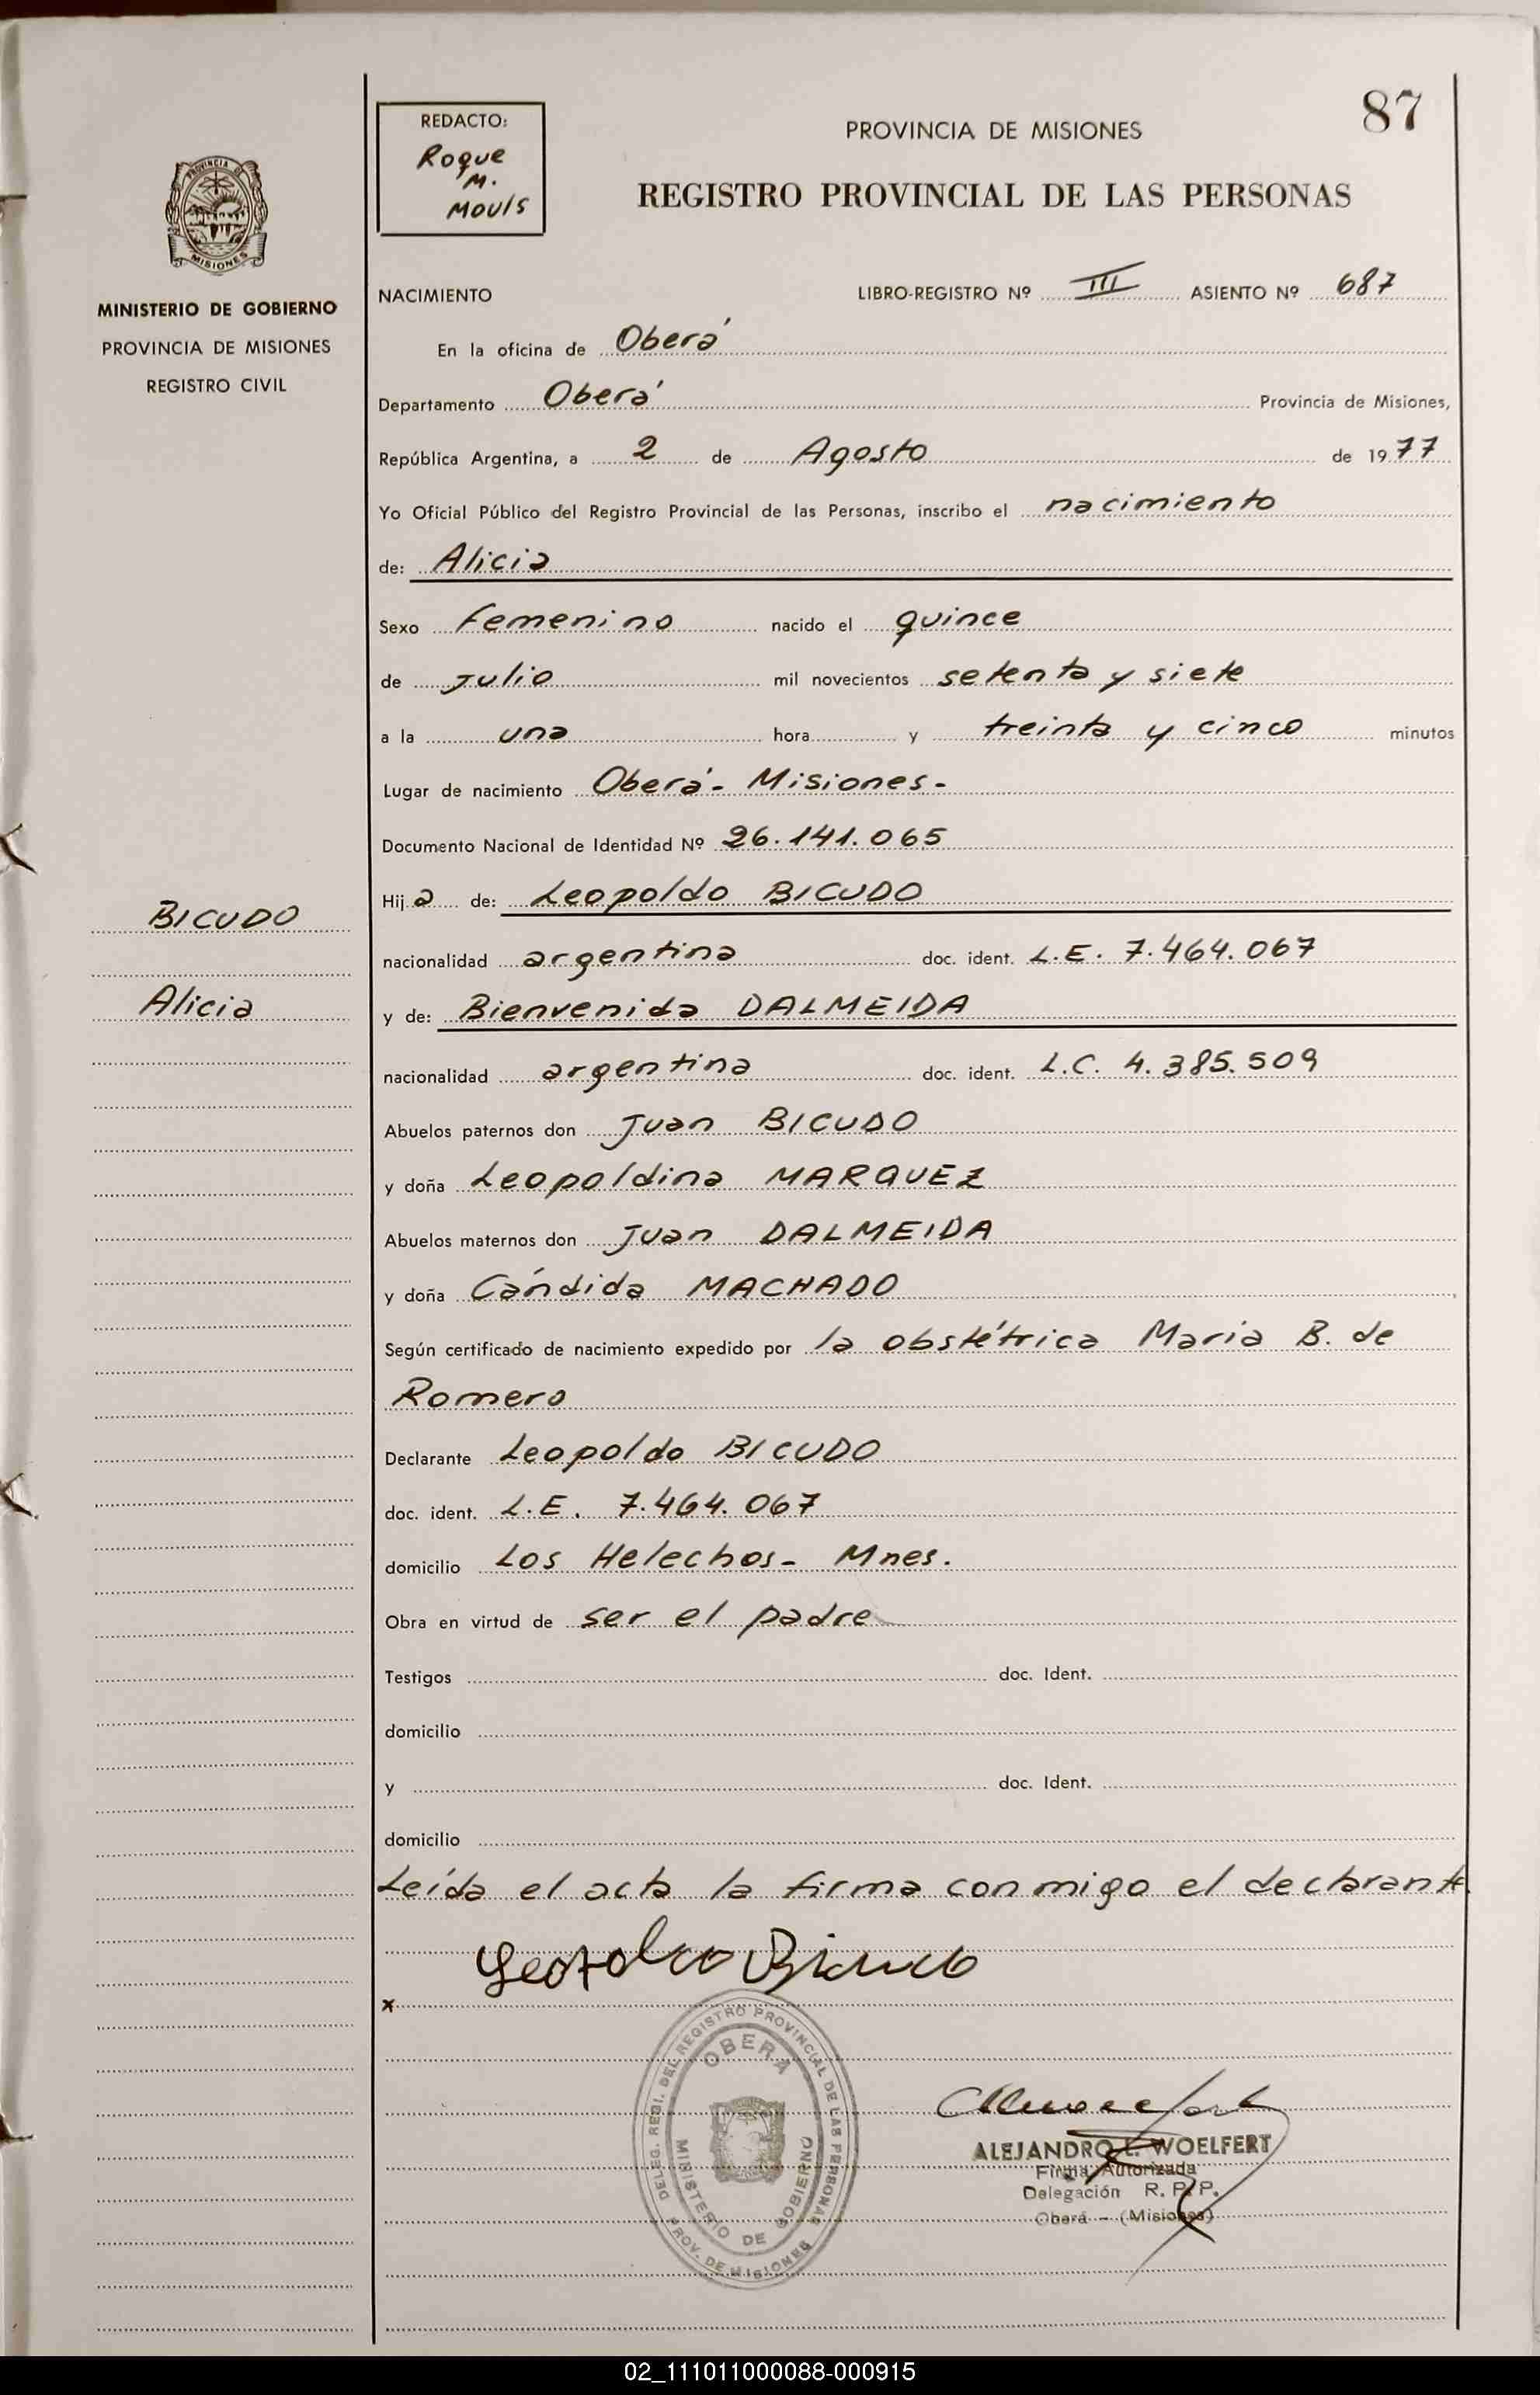 87
REDACTO:
Roque
M.
Mouls
PROVINCIA DE MISIONES
REGISTRO PROVINCIAL DE LAS PERSONAS
PROVINCIA DE
MISIONES
MINISTERIO DE GOBIERNO
PROVINCIA DE MISIONES
REGISTRO CIVIL
NACIMIENTO LIBRO-REGISTRO Nº III ASIENTO Nº 687
En la oficina de Oberá
Departamento Oberá Provincia de Misiones,
República Argentina, a 2 de Agosto de 1977
Yo Oficial Público del Registro Provincial de las Personas, inscribo el nacimiento
de: Alicia
Sexo Femenino nacido el quince
de Julio mil novecientos setenta y siete
a la una hora y treinta y cinco minutos
Lugar de nacimiento Oberá - Misiones -
Documento Nacional de Identidad Nº 26.141.065
BICUDO
Alicia
Hija de: Leopoldo BICUDO
nacionalidad argentina doc. ident. L.E. 7.464.067
y de: Bienvenida DALMEIDA
nacionalidad argentina doc. ident. L.C. 4.385.509
Abuelos paternos don Juan BICUDO
y doña Leopoldina MARQUEZ
Abuelos maternos don Juan DALMEIDA
y doña Cándida MACHADO
Según certificado de nacimiento expedido por la obstétrica Maria B. de
Romero
Declarante Leopoldo BICUDO
doc. ident. L.E. 7.464.067
domicilio Los Helechos - Mnes.
Obra en virtud de ser el padre
Testigos doc. Ident.
domicilio
y doc. Ident.
domicilio
Leída el acta la firma conmigo el declarante
x
DELEG. REGI. DEL REGISTRO PROVINCIAL DE LAS PERSONAS
OBERA
MINISTERIO DE GOBIERNO
PROV. DE MISIONES
ALEJANDRO L. WOELFERT
Firma Autorizada
Delegación R. P. P.
Oberá - (Misiones)
02_111011000088-000915